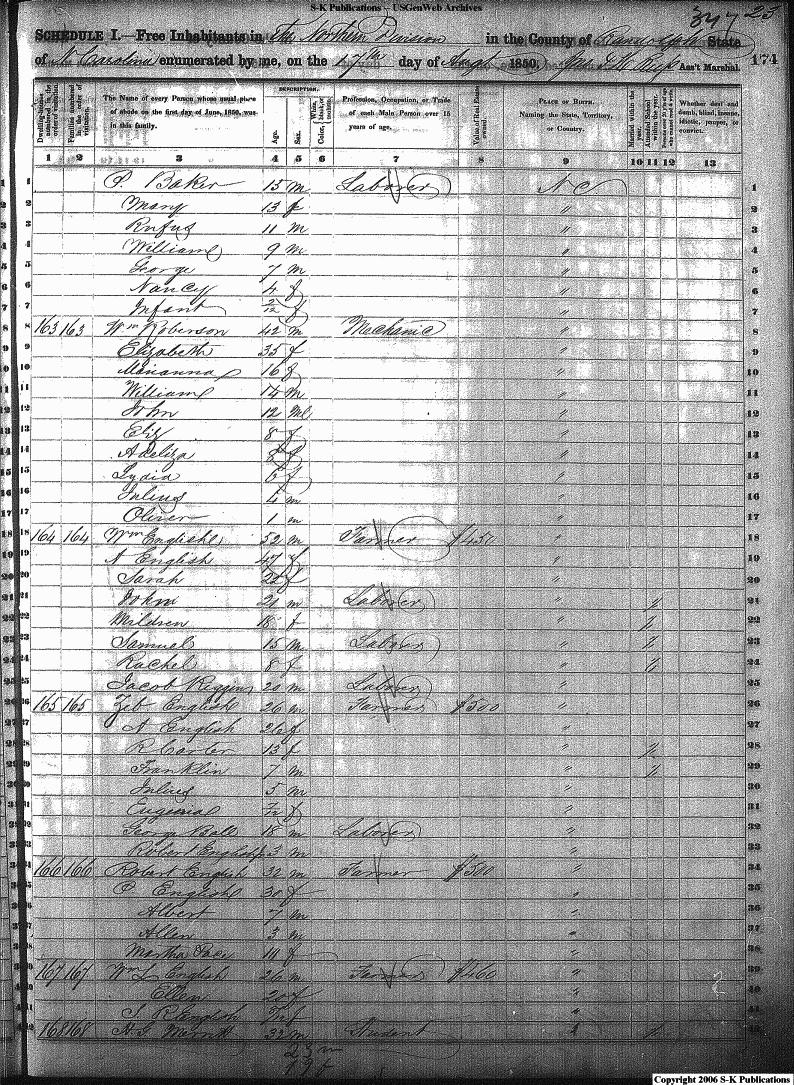 S-K Publications – USGenWeb Archives
347 25
SCHEDULE I.—Free Inhabitants in The Northern Division in the County of Randolph State
of N. Carolina enumerated by me, on the 17th day of Augt 1850. Ass't Marshal. 174
DESCRIPTION.
Dwelling-houses numbered in the order of visitation. Families numbered in the order of visitation. The Name of every Person whose usual place of abode on the first day of June, 1850, was in this family. Age. Sex. Color, White, black, or mulatto. Profession, Occupation, or Trade of each Male Person over 15 years of age. Value of Real Estate owned. PLACE OF BIRTH. Naming the State, Territory, or Country. Married within the year. Attended School within the year. Whether deaf and dumb, blind, insane, idiotic, pauper, or convict.
1 2 3 4 5 6 7 8 9 10 11 12 13
1 P. Baker 15 m Laborer N C 1
2 Mary 13 f " 2
3 Rufus 11 m " 3
4 William 9 m " 4
5 George 7 m " 5
6 Nancy 4 f " 6
7 Infant 2/12 f " 7
8 163 163 Wm Roberson 42 m Mechanic " 8
9 Elizabeth 35 f " 9
10 Marianna 16 f " 10
11 William 14 m " 11
12 John 12 m " 12
13 Eliz 8 f " 13
14 Adeliza 8 f " 14
15 Lydia 6 f " 15
16 Julius 4 m " 16
17 Oliver 1 m " 17
18 164 164 Wm English 52 m Farmer $450 " 18
19 A English 47 f " 19
20 Sarah 22 f " 20
21 John 20 m Laborer " / 21
22 Mildren 18 f " / 22
23 Samuel 15 m Laborer " / 23
24 Rachel 8 f " / 24
25 Jacob Riggins 20 m Laborer " 25
26 165 165 Zeb English 26 m Farmer $500 " 26
27 A English 26 f " 27
28 R Carter 13 f " / 28
29 Franklin 7 m " / 29
30 Julius 5 m " 30
31 Eugenia 7/12 f " 31
32 George Ball 18 m Laborer " 32
33 Robert English 3 m " 33
34 166 166 Robert English 32 m Farmer $500 " 34
35 C English 30 f " 35
36 Albert 7 m " 36
37 Allen 3 m " 37
38 Martha Pace 11 f " 38
39 167 167 Wm L English 26 m Farmer $460 " 39
40 Ellen 20 f " 40
41 S R English f " 41
42 168 168 H. G. 32 m Student " / 42
23 m
19 f
Copyright 2006 S-K Publications